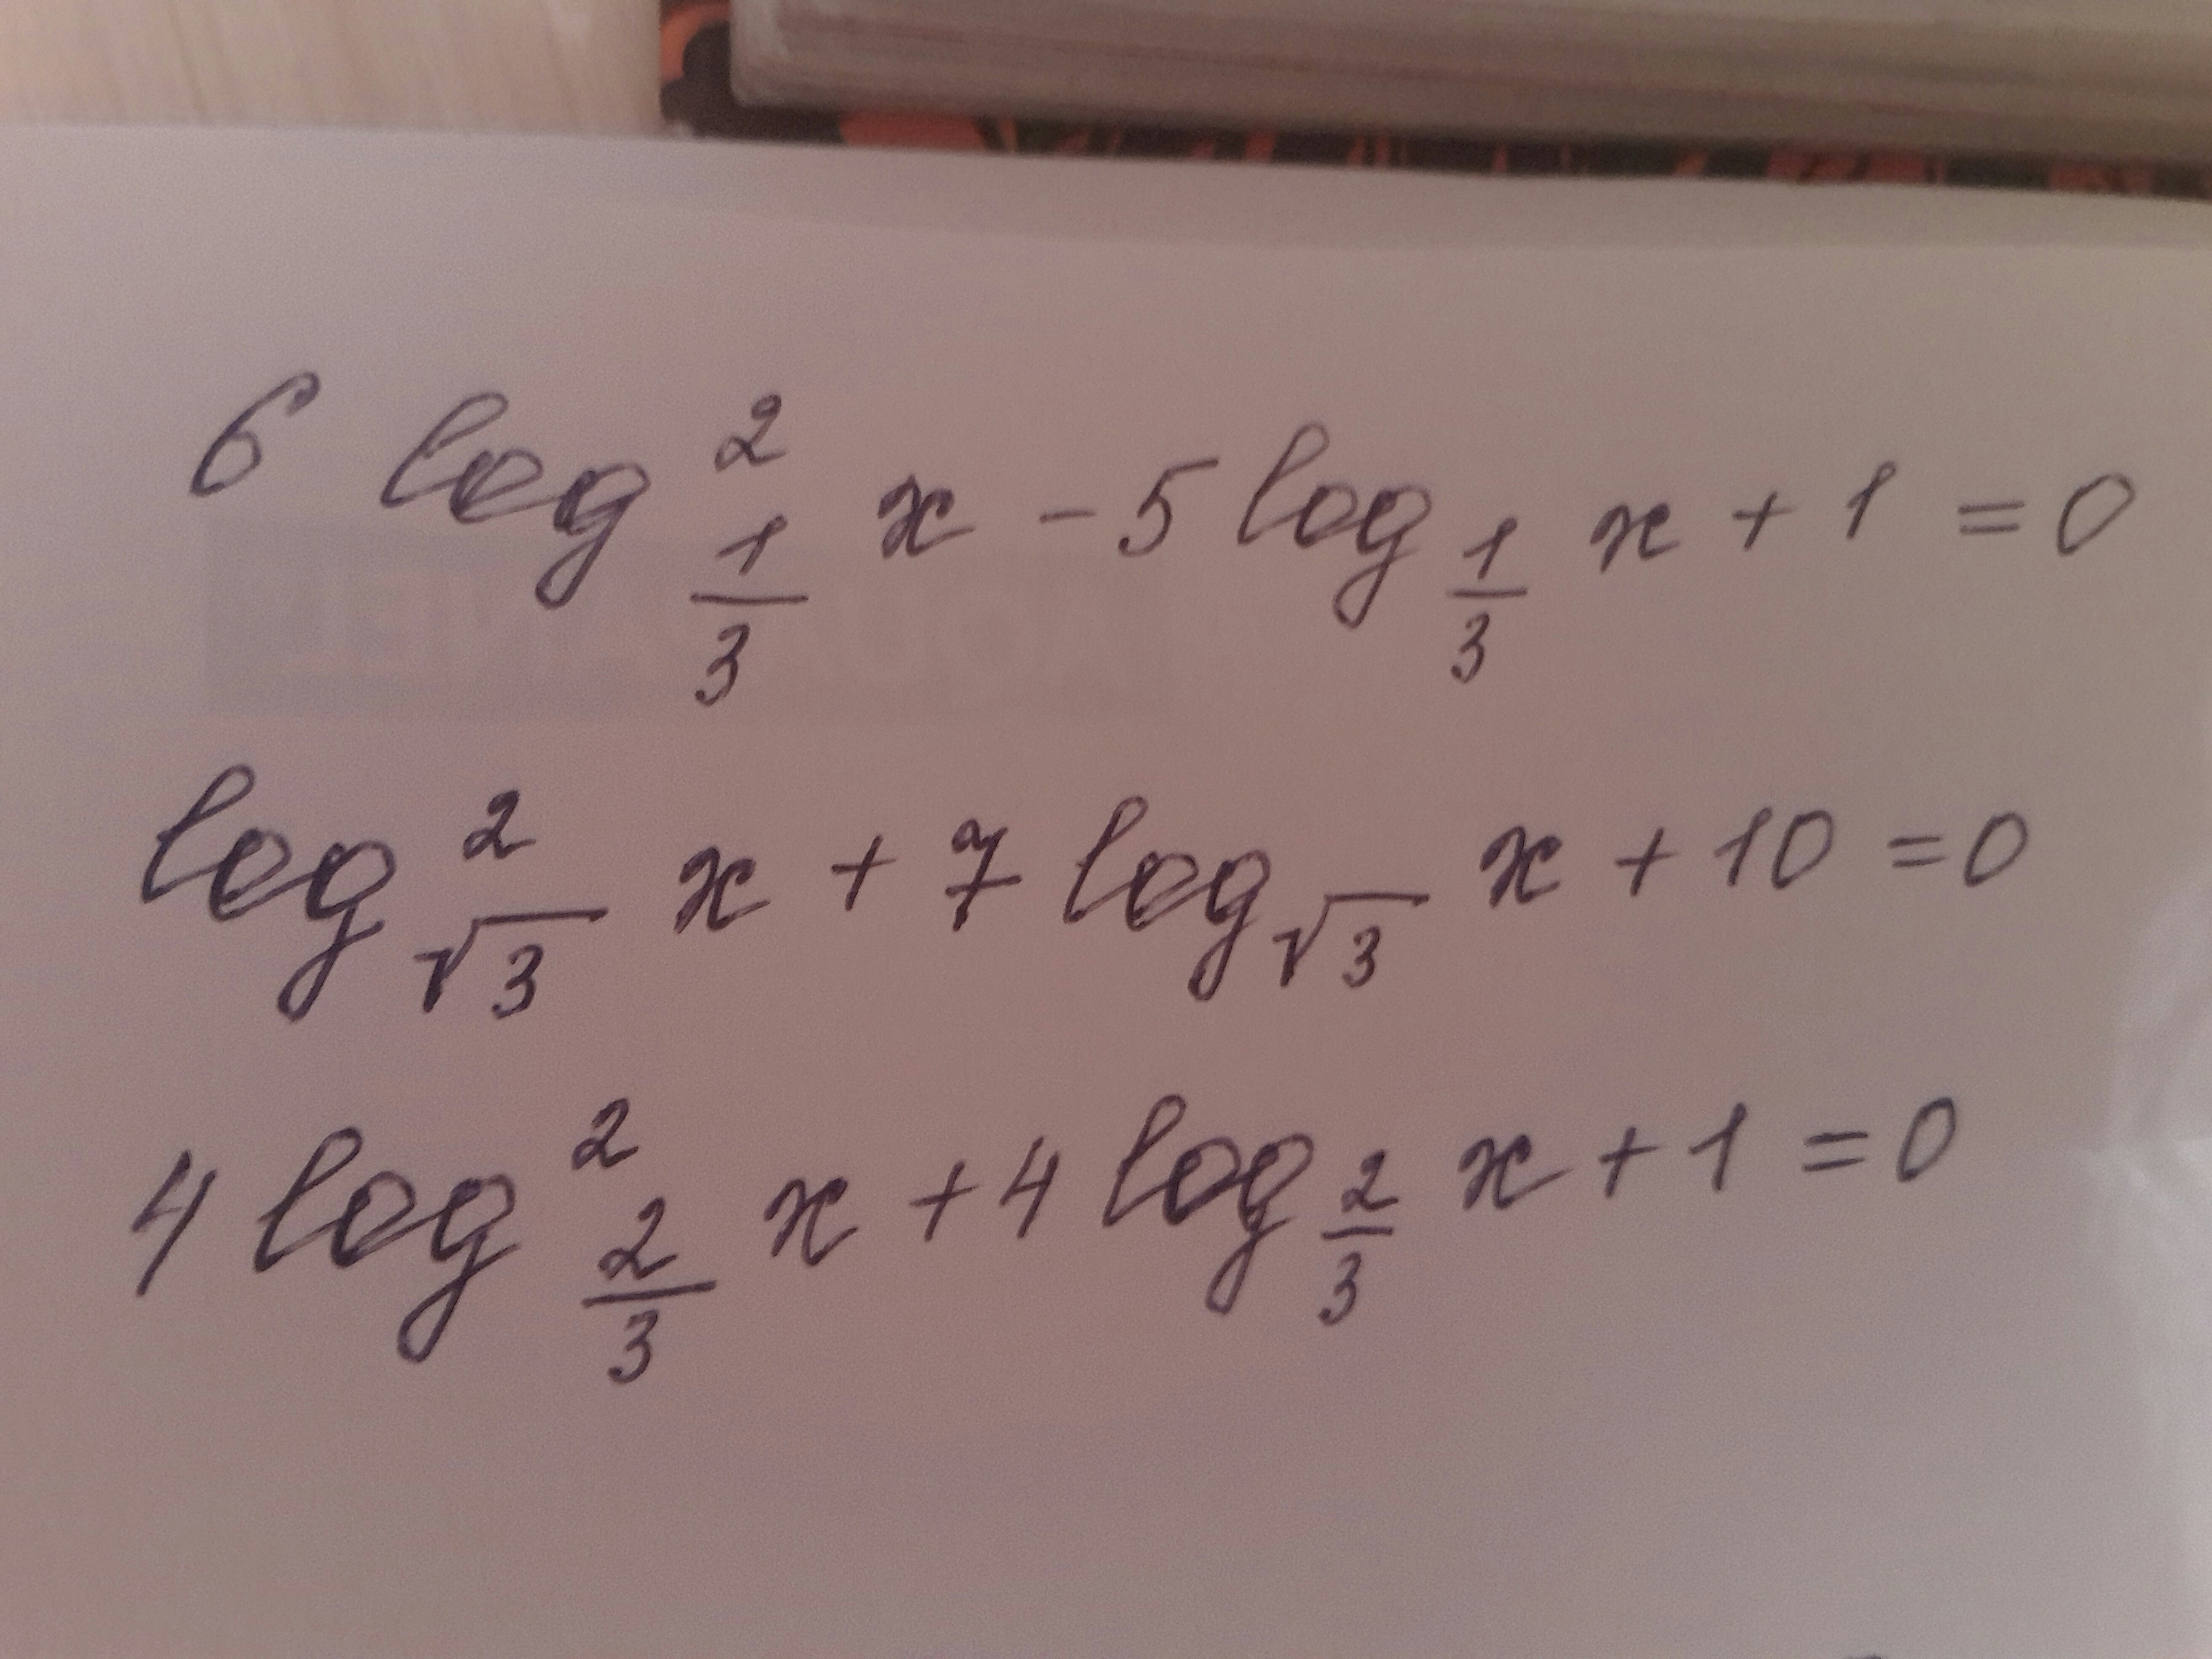 6 log²_{1/3} x - 5 log_{1/3} x + 1 = 0
log²_{√3} x + 7 log_{√3} x + 10 = 0
4 log²_{2/3} x + 4 log_{2/3} x + 1 = 0